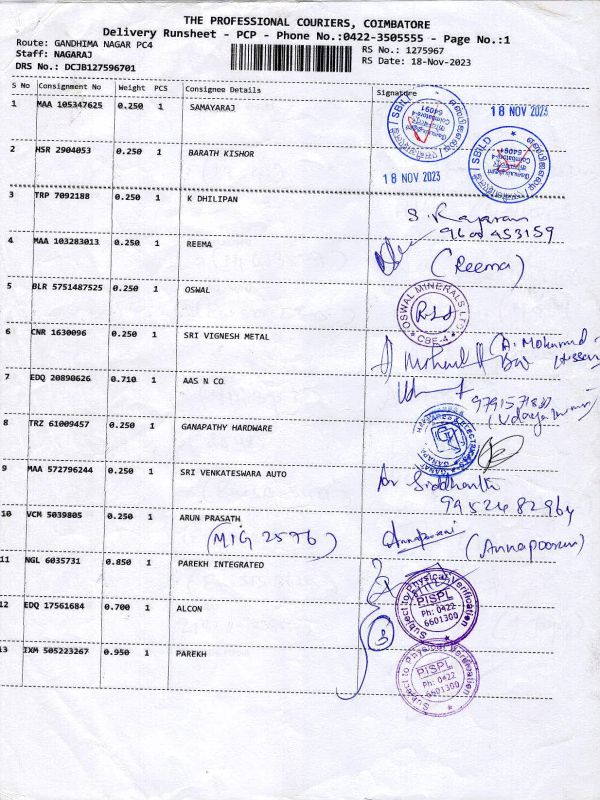 THE PROFESSIONAL COURIERS, COIMBATORE
Delivery Runsheet - PCP - Phone No.:0422-3505555 - Page No.:1
Route: GANDHIMA NAGAR PC4
Staff: NAGARAJ
DRS No.: DCJB127596701
RS No.: 1275967
RS Date: 18-Nov-2023
S No Consignment No Weight PCS Consignee Details Signature
1 MAA 105347625 0.250 1 SAMAYARAJ
SBILD
64091
18 NOV 2023
2 HSR 2904053 0.250 1 BARATH KISHOR
SBILD
64091
18 NOV 2023
3 TRP 7092188 0.250 1 K DHILIPAN
S. Rajaram
9600453159
4 MAA 103283013 0.250 1 REEMA
(Reema)
5 BLR 5751487525 0.250 1 OSWAL
OSWAL MINERALS LTD
CBE-4
6 CNR 1630096 0.250 1 SRI VIGNESH METAL
7 EDQ 20890626 0.710 1 AAS N CO
8 TRZ 61009457 0.250 1 GANAPATHY HARDWARE
9 MAA 572796244 0.250 1 SRI VENKATESWARA AUTO
Siddharth
9952482964
10 VCM 5039805 0.250 1 ARUN PRASATH
(MIG 2596)
Annapoorani
(Annapoorani)
11 NGL 6035731 0.850 1 PAREKH INTEGRATED
Subject to Physical Verification
PISPL
Ph: 0422
6601300
12 EDQ 17561684 0.700 1 ALCON
3
13 IXM 505223267 0.950 1 PAREKH
Subject to Physical Verification
PISPL
Ph: 0422
6601300